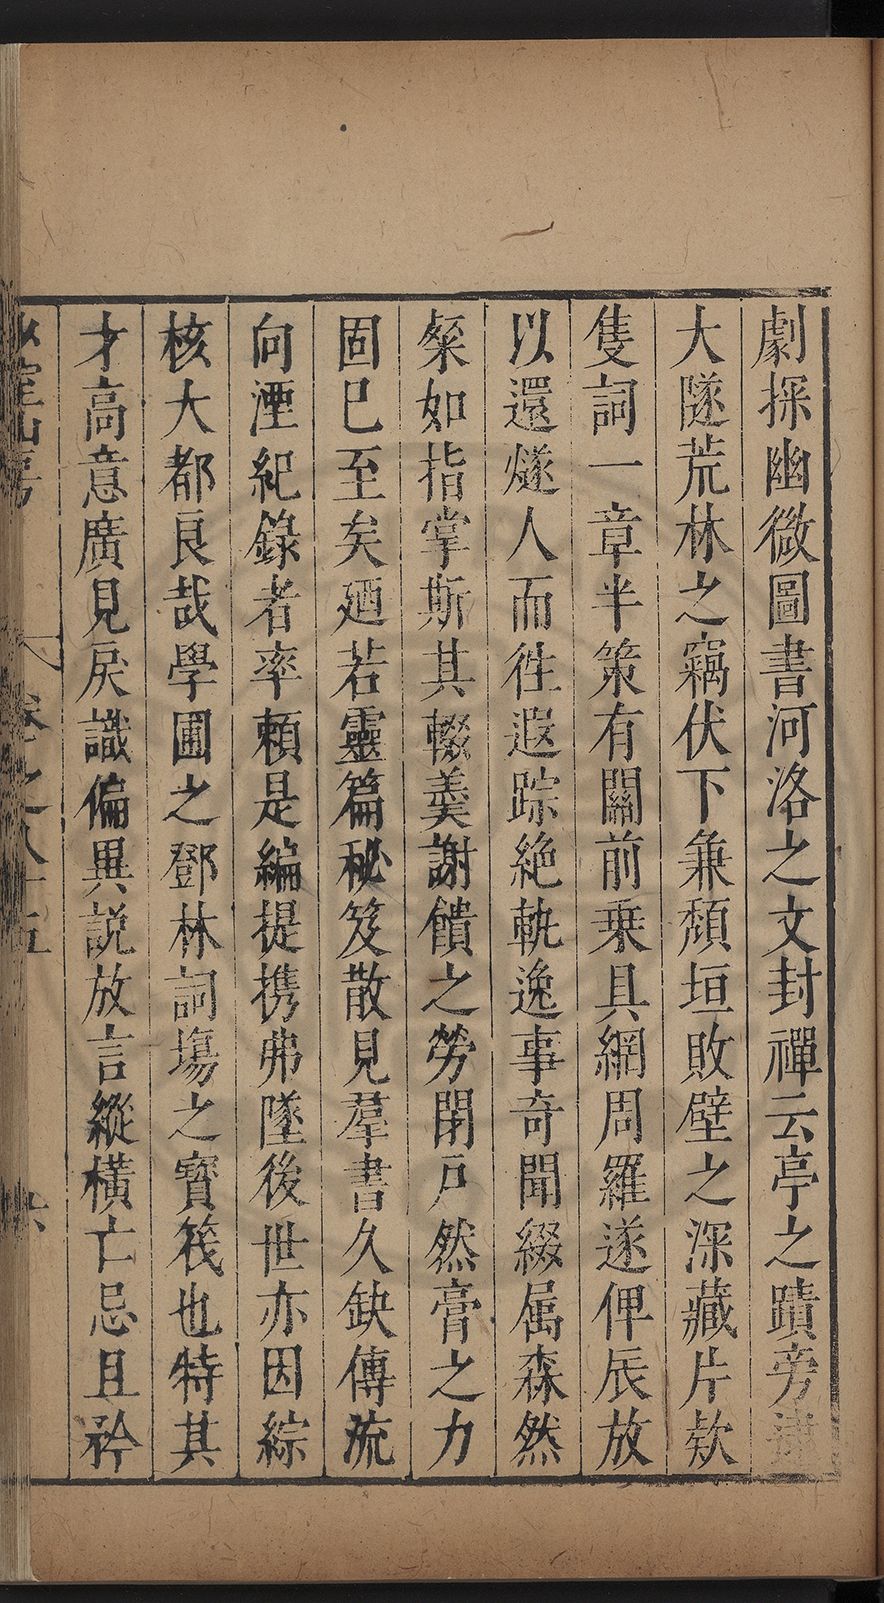 劇探幽微圖書河洛之文封禪云亭之蹟旁逮
大隧荒林之竊伏下兼頽垣敗壁之深藏片欵
隻詞一章半策有關前乗具網周羅遂俾辰放
以還燧人而徃遐踪絶軌逸事奇聞綴屬森然
粲如指掌斯其輟羮謝饋之勞閉戸然膏之力
固已至矣廼若靈篇秘笈散見羣書久缺傳流
向湮紀錄者率頼是編提携弗墜後世亦因綜
核大都良哉學圃之鄧林詞塲之寳筏也特其
才高意廣見戾識偏異説放言縱横亡忌且矜
卷之八十五